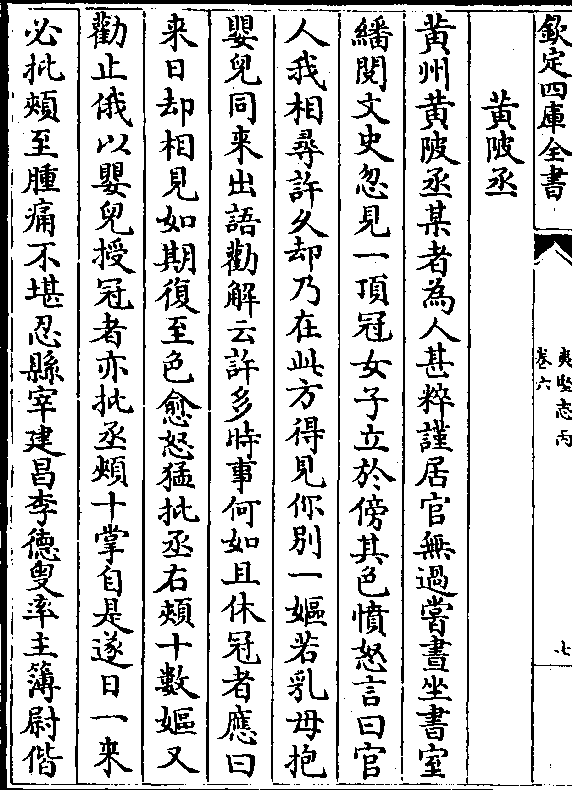 欽定四庫全書
夷堅志丙
卷六
七
黄陂丞
黄州黄陂丞某者為人甚粹謹居官無過嘗晝坐書室
繙閱文史忽見一頂冠女子立於傍其色憤怒言曰官
人我相尋許久却乃在此方得見你别一嫗若乳母抱
嬰兒同來出語勸解云許多時事何如且休冠者應曰
来日却相見如期復至色愈怒猛批丞右頰十數嫗又
勸止俄以嬰兒授冠者亦批丞頰十掌自是遂日一来
必批頰至腫痛不堪忍縣宰建昌李德叟率主簿尉偕